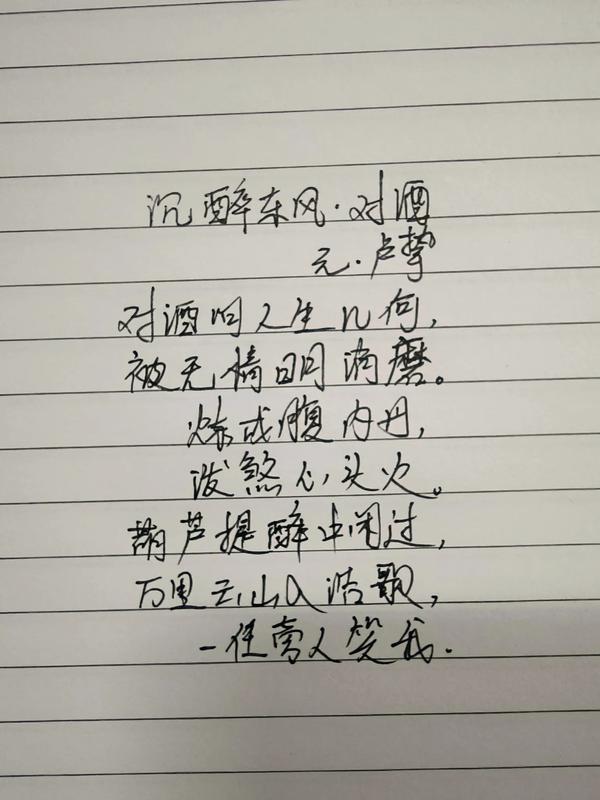 沉醉东风·对酒
元·卢挚
对酒问人生几何，
被无情日月消磨。
炼成腹内丹，
泼煞心头火。
葫芦提醉中闲过，
万里云山入浩歌，
一任旁人笑我.